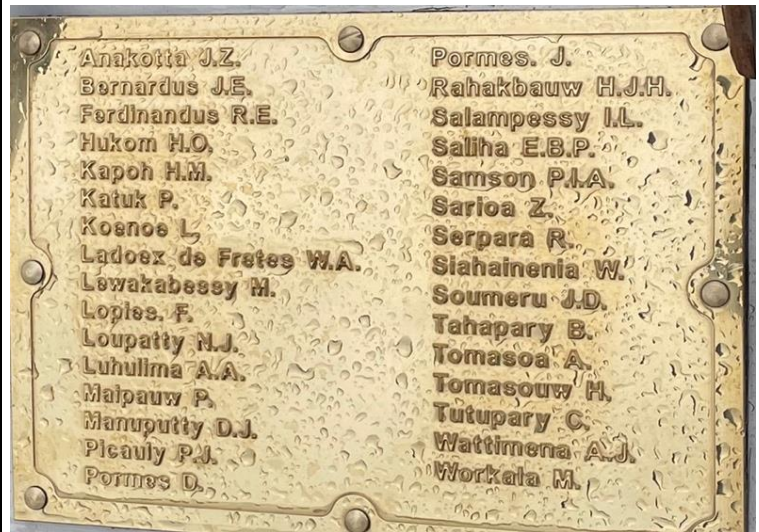 Anakotta J.Z.
Bernardus J.E.
Ferdinandus R.E.
Hukom H.O.
Kapoh H.M.
Katuk P.
Koenoe L.
Ladoex de Fretes W.A.
Lewakabessy M.
Lopies. F.
Loupatty N.J.
Luhulima A.A.
Maipauw P.
Manuputty D.J.
Picauly P.J.
Pormes D.
Pormes. J.
Rahakbauw H.J.H.
Salampessy I.L.
Saliha E.B.P.
Samson P.I.A.
Sarioa Z.
Serpara R.
Siahainenia W.
Soumeru J.D.
Tahapary B.
Tomasoa A.
Tomasouw H.
Tutupary C.
Wattimena A.J.
Workala M.